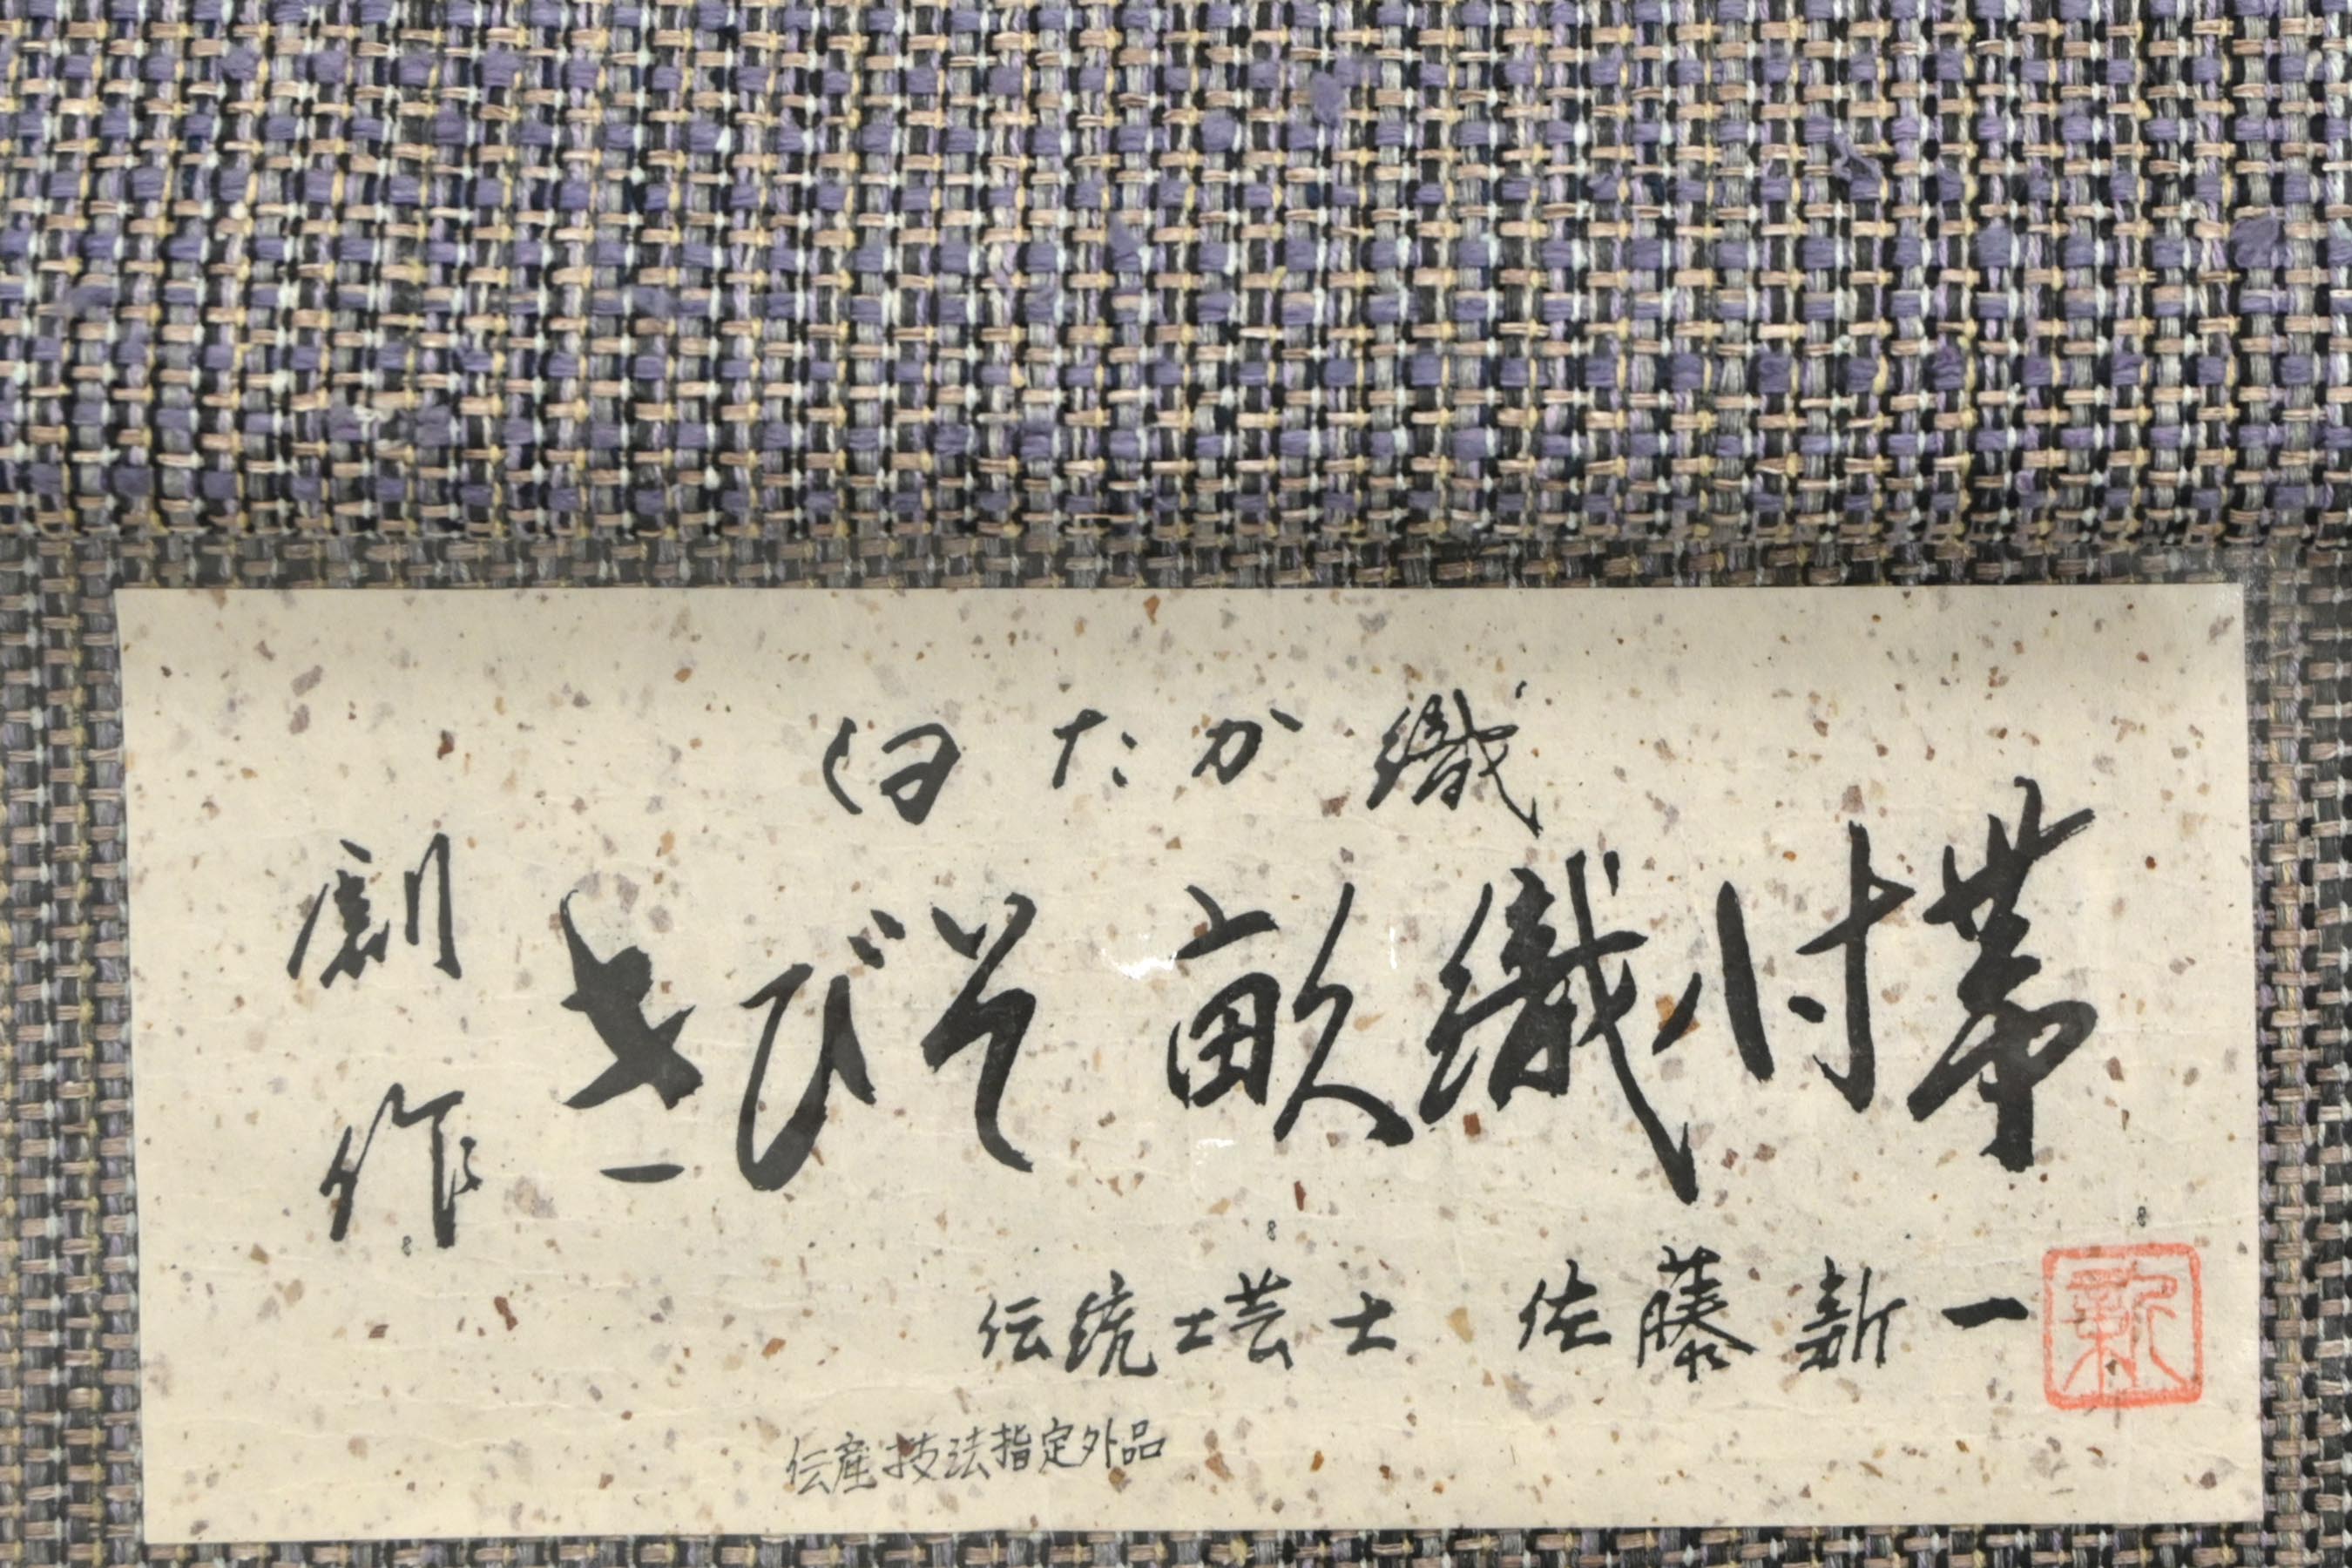 白たか織
創作
きびそ 畝織付帯
伝統工芸士 佐藤新一
新
伝産技法指定外品